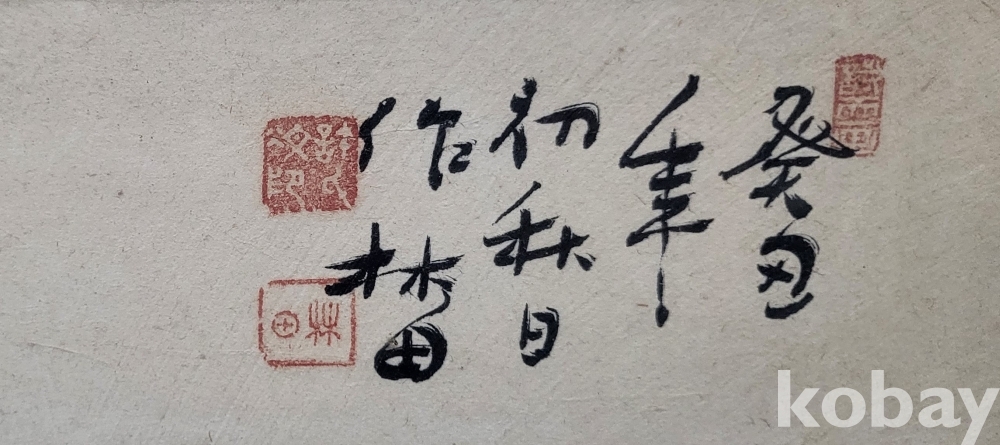 癸丑
年
初秋日
作林田
林田
kobay